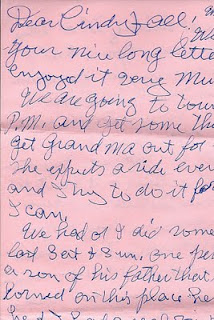 Dear Cindy & all!
Your nice long lette
enjoyed it very mu
We are going to tow
P.M. and get some th
get Grandma out for
she expects a ride ever
and I try to do it for
I can.
We had or I did some
last Sat & Sun. one per
a son of his father that
borned on this place he